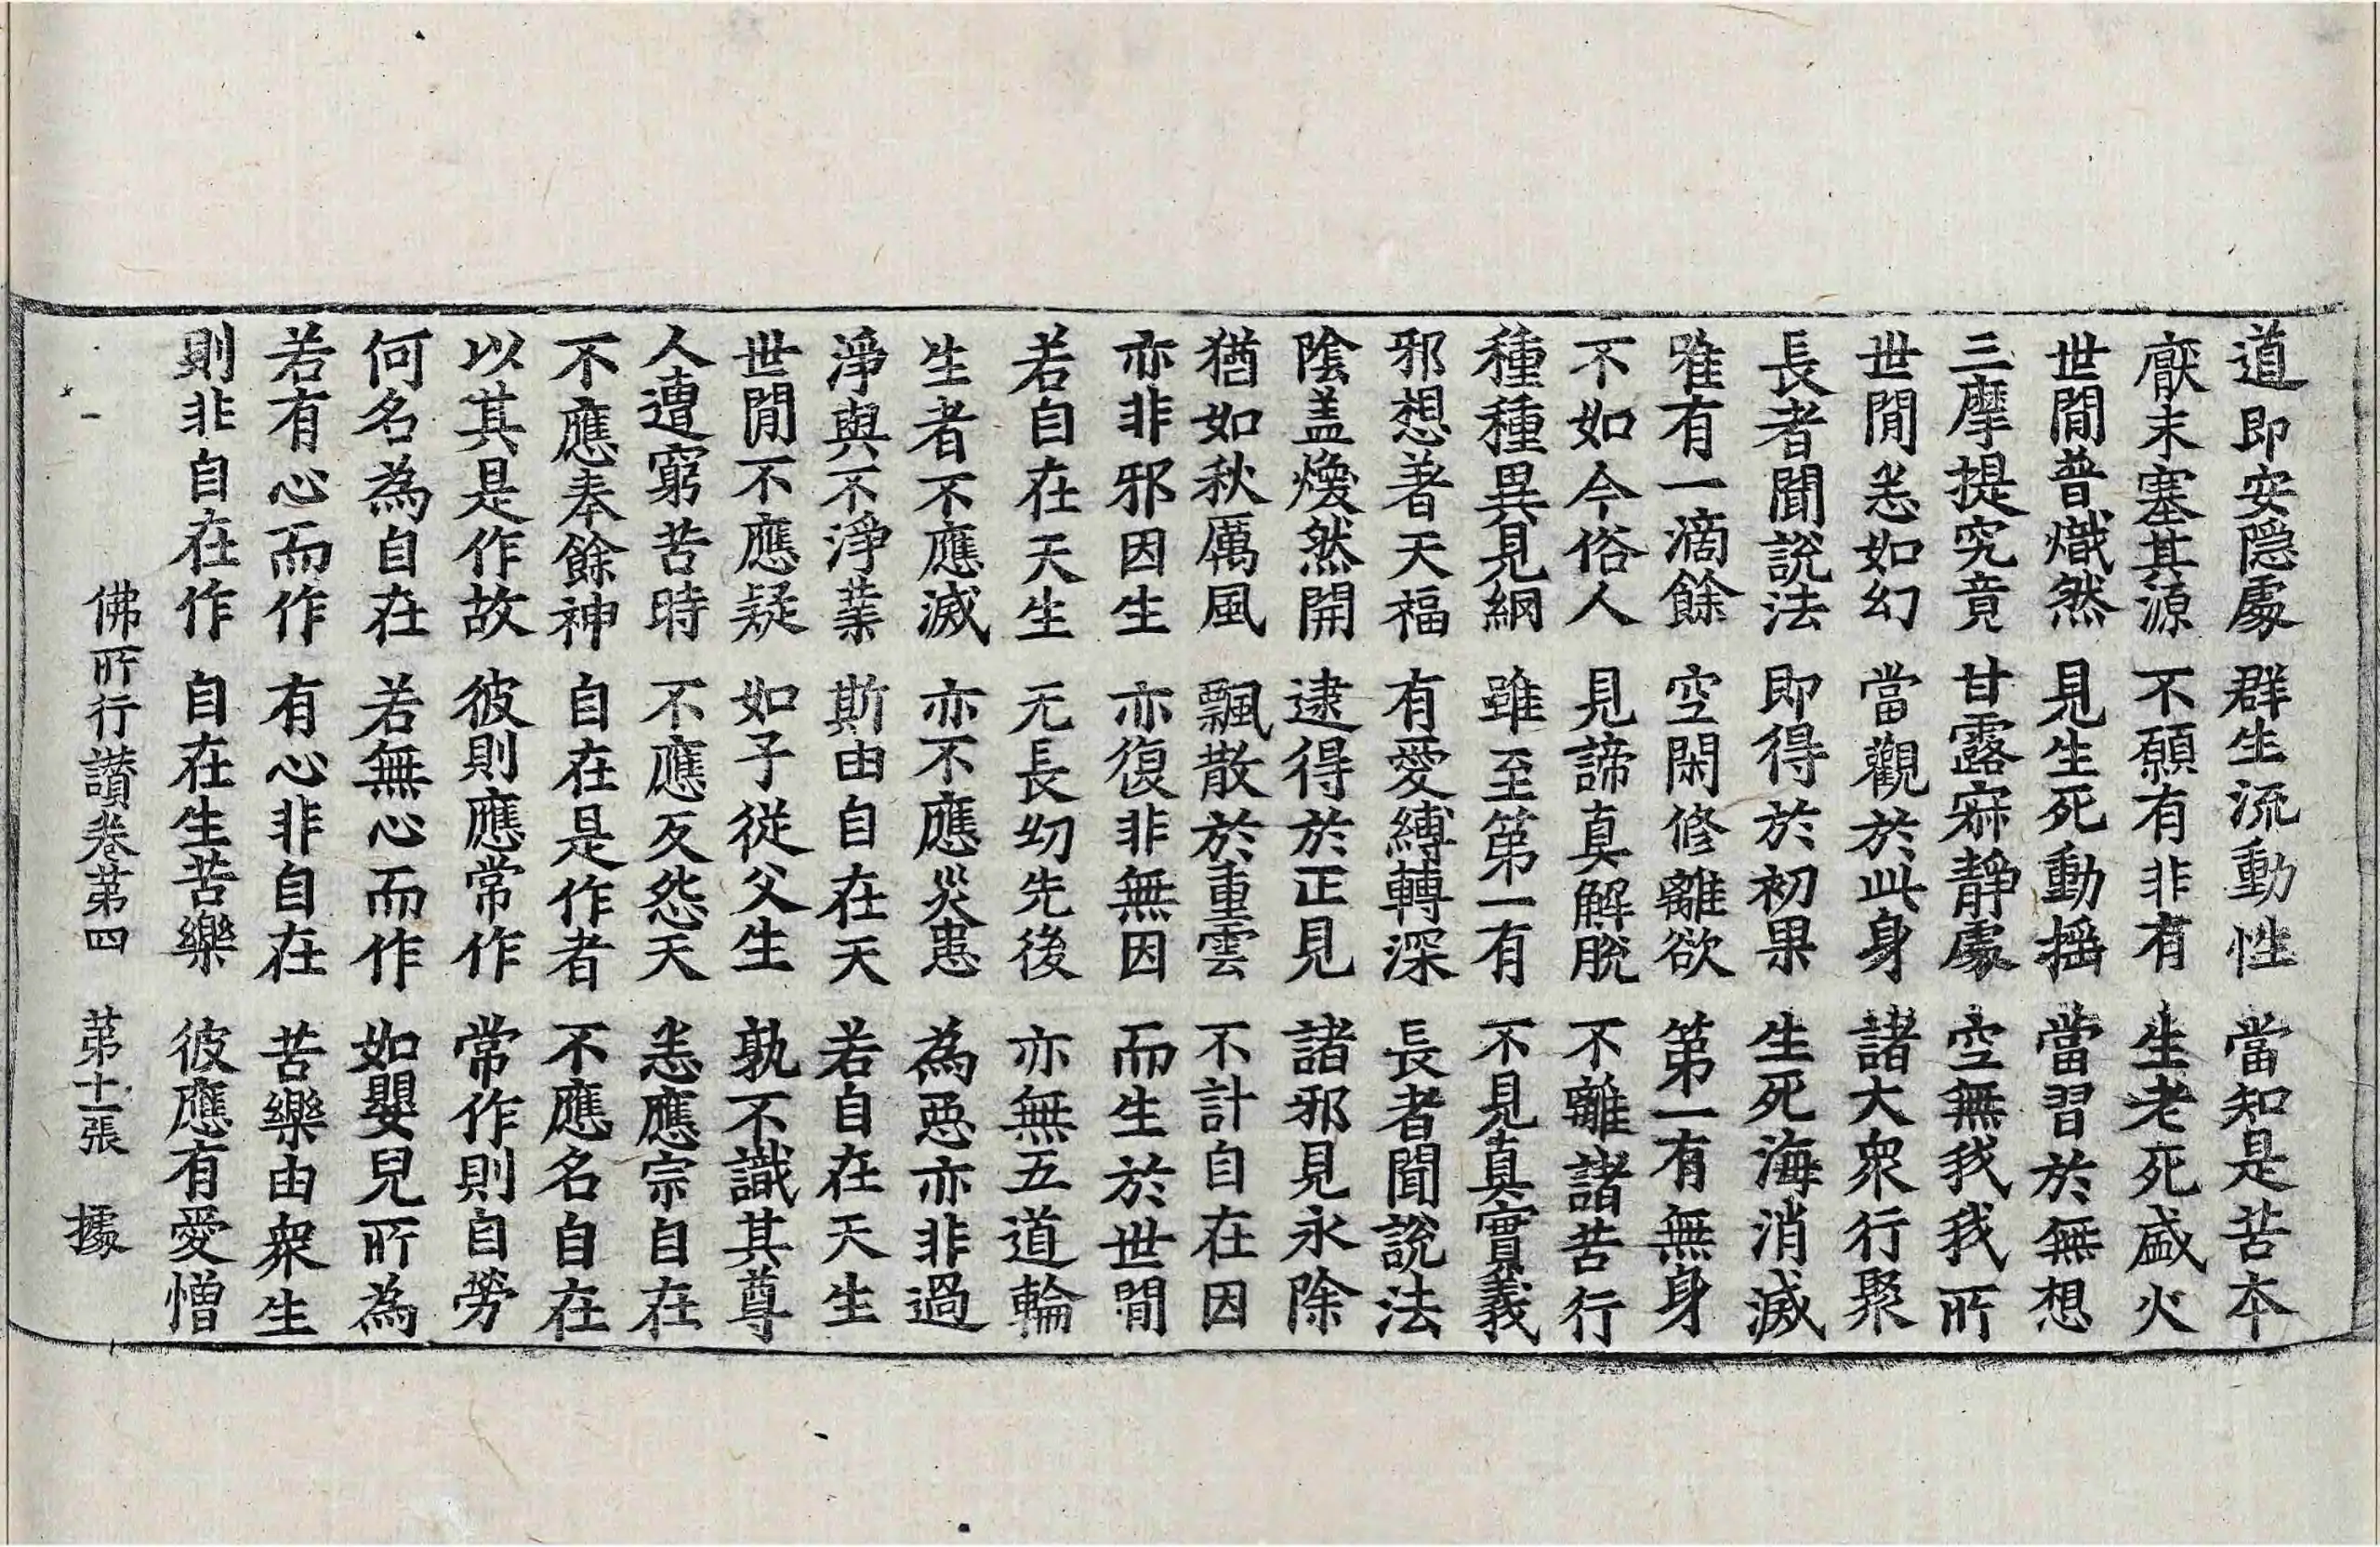 道即安隱處 群生流動性 當知是苦本
厭末塞其源 不願有非有 生老死盛火
世閒普熾然 見生死動揺 當習於無想
三摩提究竟 甘露寂靜處 空無我我所
世閒悉如幻 當觀於此身 諸大衆行聚
長者聞說法 即得於初果 生死海消滅
唯有一滴餘 空閑修離欲 第一有無身
不如今俗人 見諦真解脫 不離諸苦行
種種異見網 雖至第一有 不見真實義
邪想著天福 有愛縛轉深 長者聞說法
陰盖煥然開 逮得於正見 諸邪見永除
猶如秋厲風 飄散於重雲 不計自在因
亦非邪因生 亦復非無因 而生於世閒
若自在天生 无長幼先後 亦無五道輪
生者不應滅 亦不應災患 為惡亦非過
淨與不淨業 斯由自在天 若自在天生
世閒不應疑 如子從父生 孰不識其尊
人遭窮苦時 不應反怨天 悉應宗自在
不應奉餘神 自在是作者 不應名自在
以其是作故 彼則應常作 常作則自勞
何名為自在 若無心而作 如嬰兒所為
若有心而作 有心非自在 苦樂由衆生
則非自在作 自在生苦樂 彼應有愛憎
佛所行讃卷第四 第十一張 據